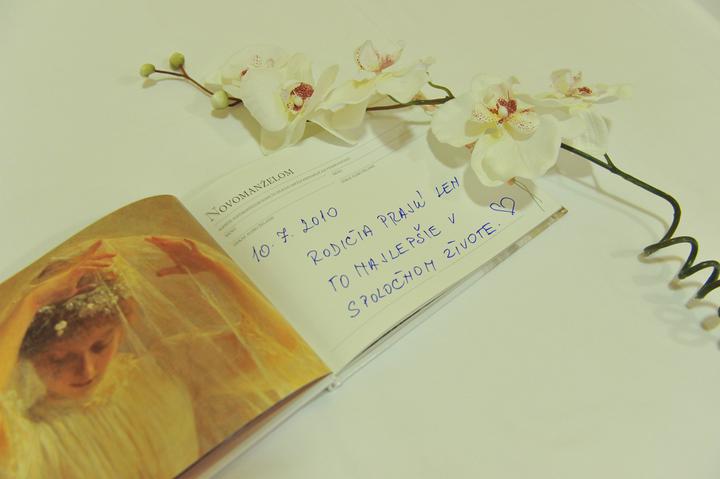 NOVOMANŽELOM
10.7.2010
RODIČIA PRAJÚ LEN
TO NAJLEPŠIE V
SPOLOČNOM ŽIVOTE.